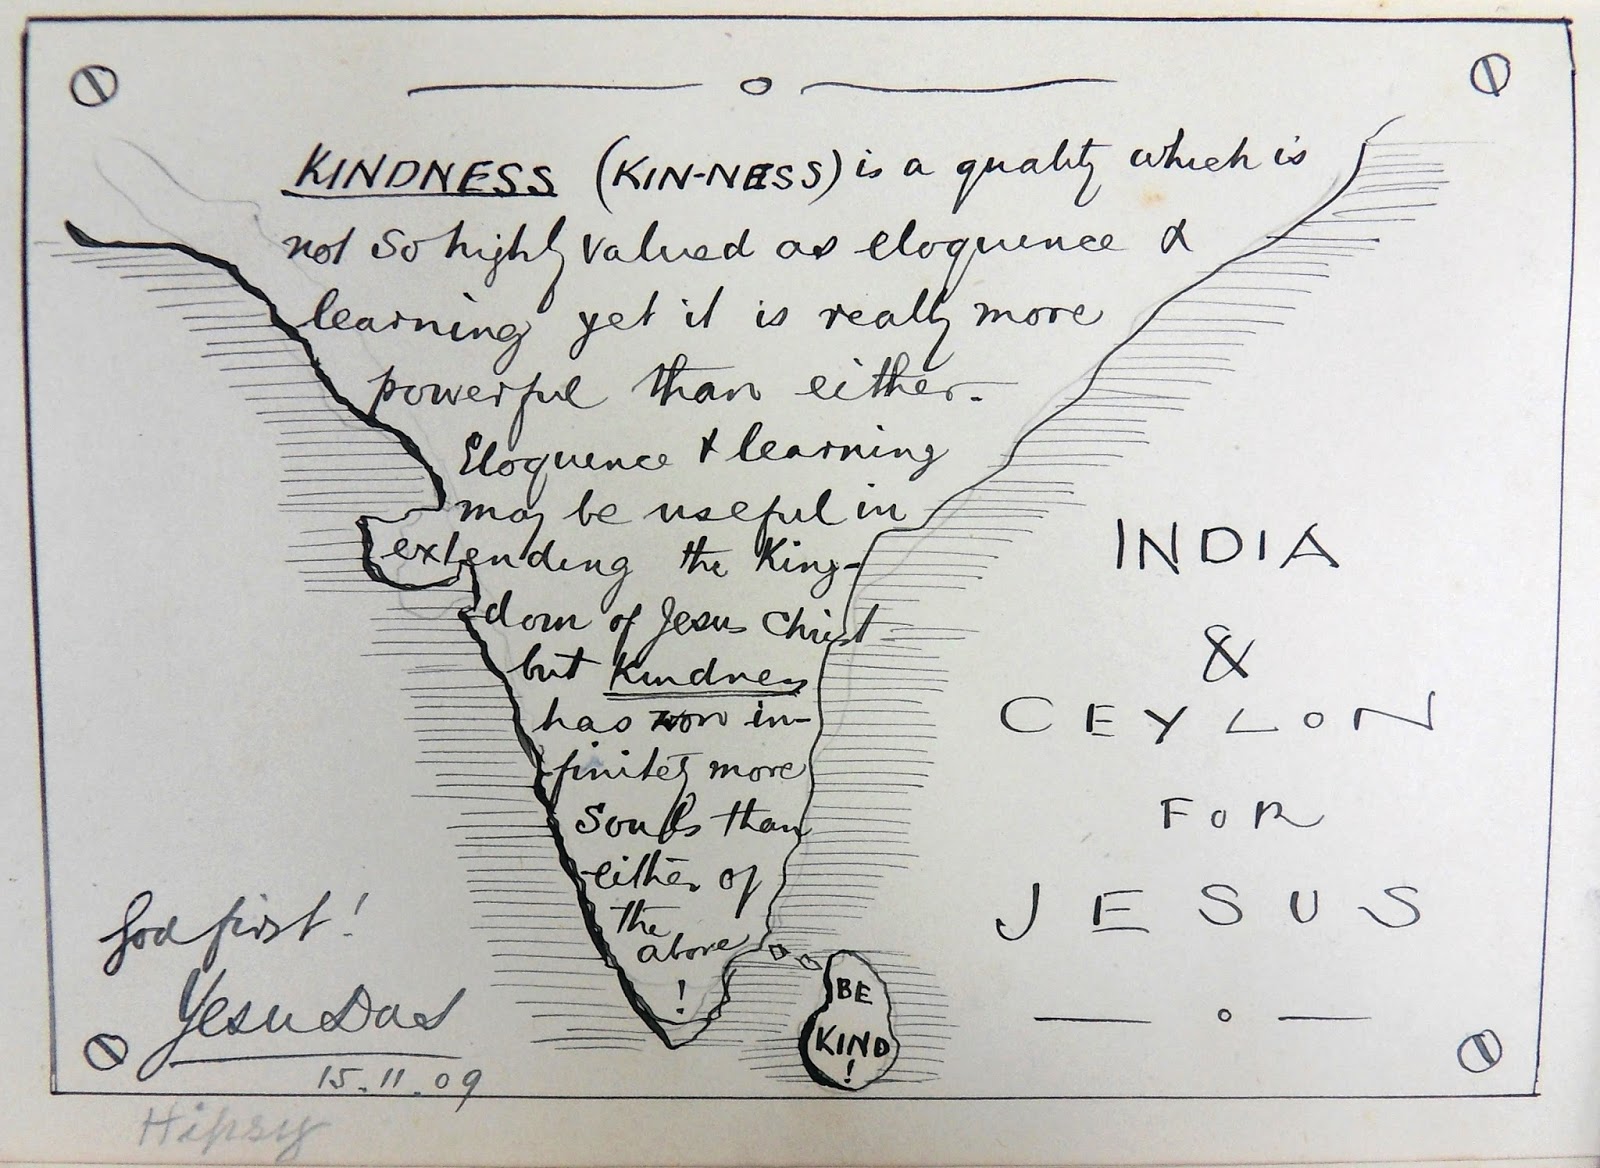 KINDNESS (KIN-NESS) is a quality which is
not so highly valued as eloquence &
learning yet it is really more
powerful than either.
Eloquence & learning
may be useful in
extending the King-
dom of Jesus Christ
but Kindness
has won in-
finitely more
Souls than
either of
the
above
!
BE
KIND
!
INDIA
&
CEYLON
FOR
JESUS
God first!
Yesu Das
15.11.09
Hipsy